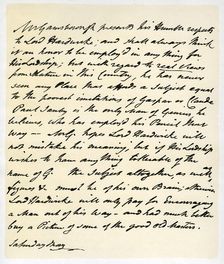 Mr Gainsborough presents his Humble respects
to Lord Hardwicke; and shall always think
it an honor to be employ'd in any thing for
his Lordship; but with regard to real Views
from Nature in this Country, he has never
seen any Place that affords a Subject equal
to the poorest imitations of Gaspar or Claude.
Paul Sanby is the only Man of Genius, he
believes, who has employ'd his Pencil that
Way — Mr G. hopes Lord Hardwicke will
not mistake his meaning, but if his Lordship
wishes to have any thing tollerable of the
name of G. the Subject altogether, as well as
figures &c must be of his own Brain; otherwise
Lord Hardwicke will only pay for Encouraging
a Man out of his Way — and had much better
buy a Picture of some of the good Old Masters.